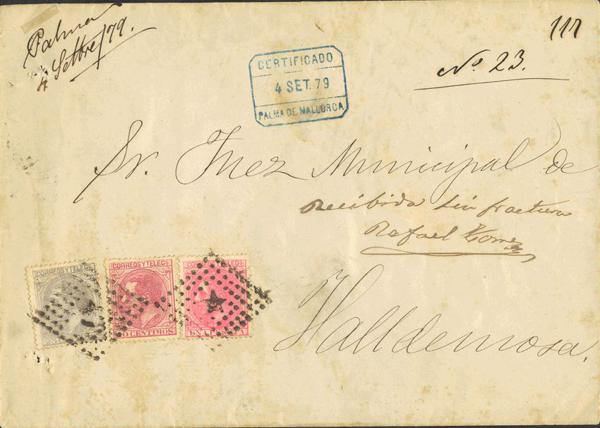 Palma
4 Settbre/79.
117
CERTIFICADO
4 SET. 79
PALMA DE MALLORCA
No. 23.
Sr. Juez Municipal de
Recibida sin fractura
Rafael
Valldemosa.
CORREOS Y TELEGS
CORREOS Y TELEGS
CENTIMOS